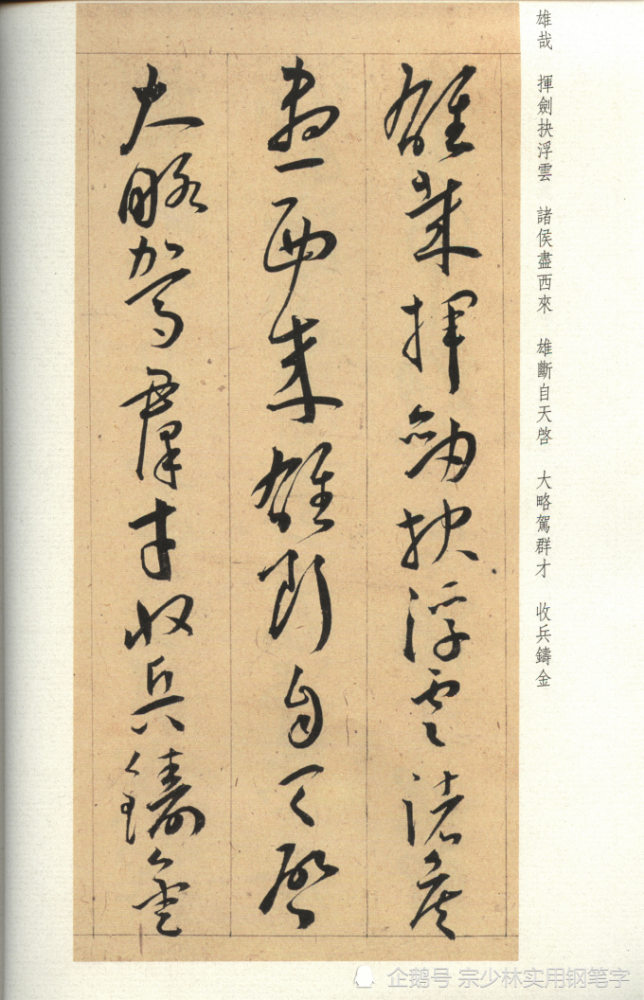 雄哉　揮劍抉浮雲　諸侯盡西來　雄斷自天啓　大略駕群才　收兵鑄金
雄哉揮劍抉浮雲諸侯
盡西來雄斷自天啓
大略駕羣才收兵鑄金
企鹅号 宗少林实用钢笔字